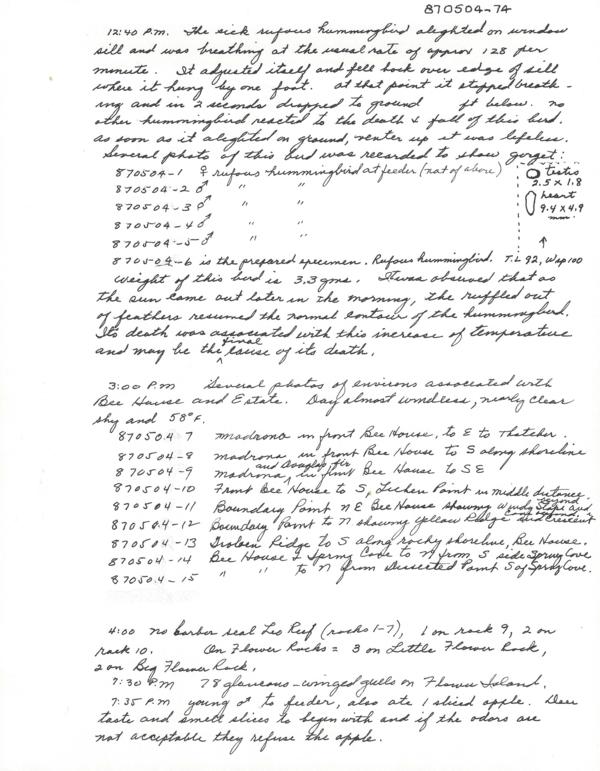 870504-74
12:40 P.M. The sick rufous hummingbird alighted on window
sill and was breathing at the usual rate of approx 128 per
minute. It adjusted itself and fell back over edge of sill
where it hung by one foot. At that point it stopped breath-
ing and in 2 seconds dropped to ground ft below. No
other hummingbird reacted to the death & fall of this bird.
As soon as it alighted on ground, venter up it was lifeless.
Several photo of this bird was recorded to show gorget:
870504-1 ♀ rufous hummingbird at feeder (not of above)
870504-2 ♂ " "
870504-3 ♂ " "
870504-4 ♂ " "
870504-5 ♂ " "
testis
2.5 x 1.8
heart
9.4 x 4.9
mm
870504-6 is the prepared specimen. Rufous hummingbird. T.L 92, Wsp 100
Weight of this bird is 3.3 gms. It was observed that as
the sun came out later in the morning, the ruffled out
of feathers resumed the normal contour of the hummingbird.
Its death was associated with this increase of temperature
and may be the final cause of its death.
3:00 P.M Several photos of environs associated with
Bee House and Estate. Day almost windless, nearly clear
sky and 58°F.
870504-7 madrona in front Bee House, to E to Thatcher.
870504-8 madrona in front Bee House to S along shoreline
870504-9 madrona and Douglas fir in front Bee House to SE
870504-10 Front Bee House to S, Lichen Point in middle distance.
870504-11 Boundary Point NE Bee House showing Windy Slope and beyond
870504-12 Boundary Point to N showing Yellow Ridge and Crescent
870504-13 Ridge to S along rocky shoreline, Bee House.
870504-14 Bee House & Spring Cove to N from S side Spring Cove
870504-15 " " to N from Dissected Point S of Spring Cove.
4:00 no harbor seal Leo Reef (rocks 1-7), 1 on rock 9, 2 on
rock 10. On Flower Rocks = 3 on Little Flower Rock,
2 on Big Flower Rock.
7:30 P.M 78 glaucous-winged gulls on Flower Island.
7:35 P.M. young ♂ to feeder, also ate 1 sliced apple. Deer
taste and smell slices to begin with and if the odors are
not acceptable they refuse the apple.